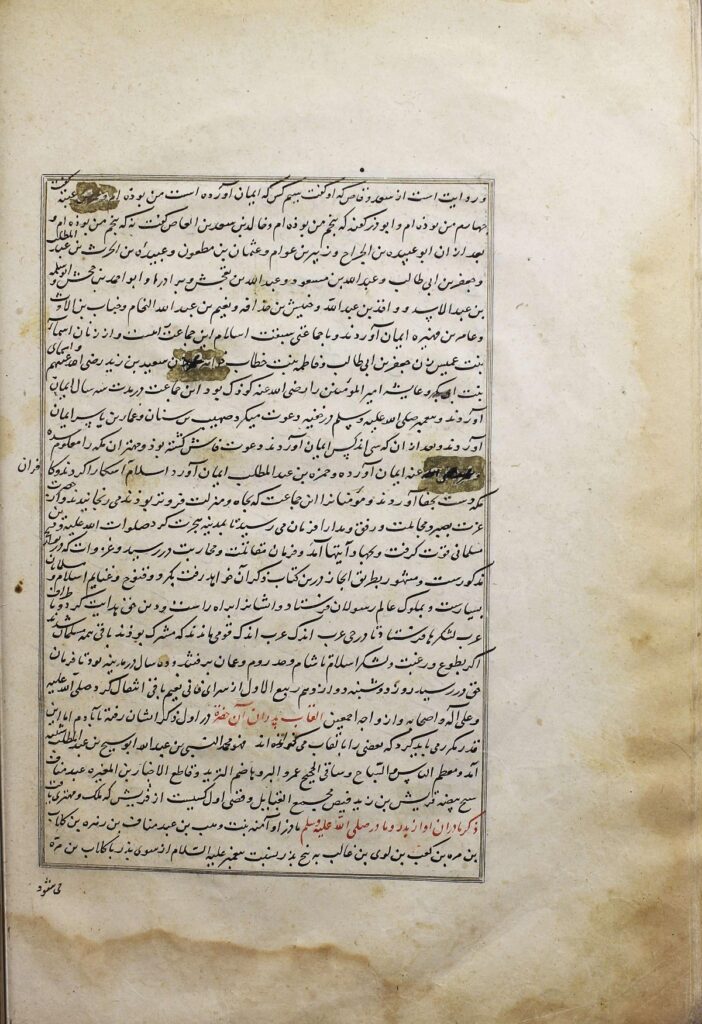 و روایت است از سعد وقاص که او گفت سیم کس که ایمان آورده است من بوده ام و گفت
چهارم من بوده ام و ابوذر گوید که پنجم من بوده ام و خالد بن سعد بن العاص گفت نه که پنجم من بوده ام و
بعد از ان ابو عبیده بن الجراح و زبیر بن عوام و عثمان بن مظعون و عبیده بن الحرث بن عبد المطلب
و جعفر بن ابی طالب و عبد الله بن مسعود و عبد الله بن جحش و برادرها و ابو احمد بن جحش و ابو سلمه
بن عبد الاسد و واقد بن عبد الله و خنیس بن حذافه و نعیم بن عبد الله النحام و خباب بن الارت
و عامر بن فهیره ایمان آوردند و با جماعتی سبقت اسلام این جماعت راست و از زنان اسماء
بنت عمیس زن جعفر بن ابی طالب و فاطمه بنت خطاب زن سعید بن زید رضی الله عنهم و اسمای
بنت ابی بکر و عایشه ام المومنین را رضی الله عنه کودک بود این جماعت در مدت سه سال ایمان
آوردند و پیغمبر صلی الله علیه وسلم در خفیه دعوت میکرد صهیب بن سنان و عمار بن یاسر ایمان
آوردند و بعد از ان که سی اند کس ایمان آوردند دعوت فاش گشته بود و مهتران مکه را معلوم شده
عنه ایمان آورده و حمزه بن عبد المطلب ایمان آورد اسلام آشکارا کردند و کفار
قران
مکه دست بجفا آوردند و مومنانرا این جماعت که بجاه و منزلت فروتر بودند می رنجانیدند و از حضرت
عزت بصبر و مجاملت و رفق و مدارا فرمان می رسید تا بمدینه هجرت کرد صلوات الله علیه و دین
مسلمانی قوت گرفت و بجهاد آیتها آمد و فرمان مقاتلت و محاربت در رسید و غزوات که در
مذکورست و مشهور بطریق ایجاز درین کتاب ذکر آن خواهد رفت بکرد و فتوح و غنایم اسلام و مسلمانان
بسیارست و بملوک عالم رسولان فرستاد و ایشانرا براه راست و دین حق هدایت کرد و با طراف
عرب لشکرها فرستاد تا در حی عرب اندک عرب اندک قومی ماندند که مشرک بودند باقی همه مسلمان شدند
اکثر بطوع و رغبت و لشکر اسلام تا شام و حد روم و عمان برفتند و ده سال در مدینه بود تا فرمان
حق در رسید روز دوشنبه دوازدهم ربیع الاول از سرای فانی بنعیم باقی انتقال کرد صلی الله علیه
و علی آله و اصحابه و ازواجه اجمعین القاب پدران آن حضرة در اول ذکر ایشان رفته تا بآدم اما این
قدر مکرر می باید کرد که بعضی را بالقاب می خوانده اند هو محمد النبی بن عبد الله ابو سیح بن عبد المطلب شیبه
آمد و مطعم الناس و السباع و ساقی الحجیج عمرو البر و هاضم الثرید و قاطع الاخبار بن المغیره عبد مناف
سیح بیضه قریش بن زید قصی مجمع القبایل و قصی اول کسیست از قریش که ملک و مهتری یافت
ذکر مادران او از پدر و مادر صلی الله علیه وسلم مادر او آمنه بنت وهب بن عبد مناف بن زهره بن کلاب
بن مره بن کعب بن لوی بن غالب به پنج پدر بنسبت پیغمبر علیه السلام از سوی پدر با کلاب بن مره
می شود